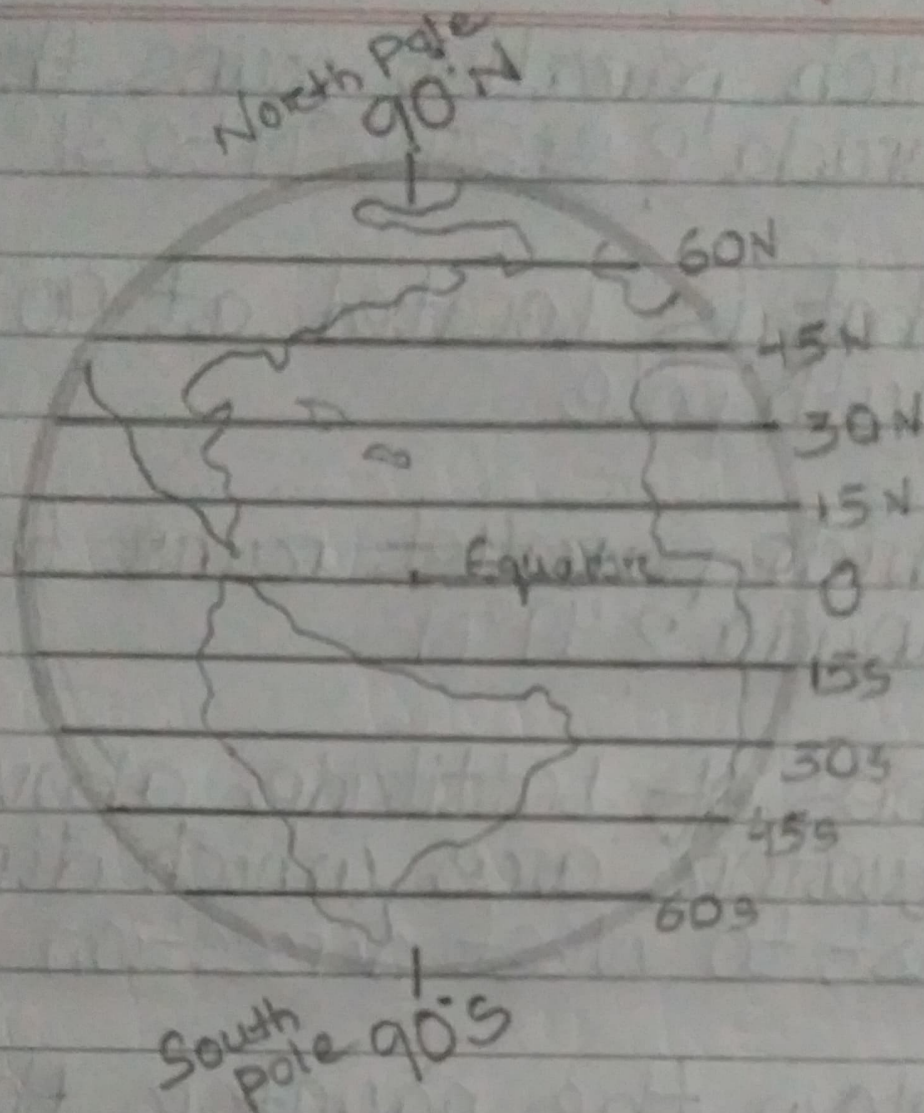 North pole
90°N
60N
45N
30N
15N
Equator
0
15S
30S
45S
60S
South
pole 90°S